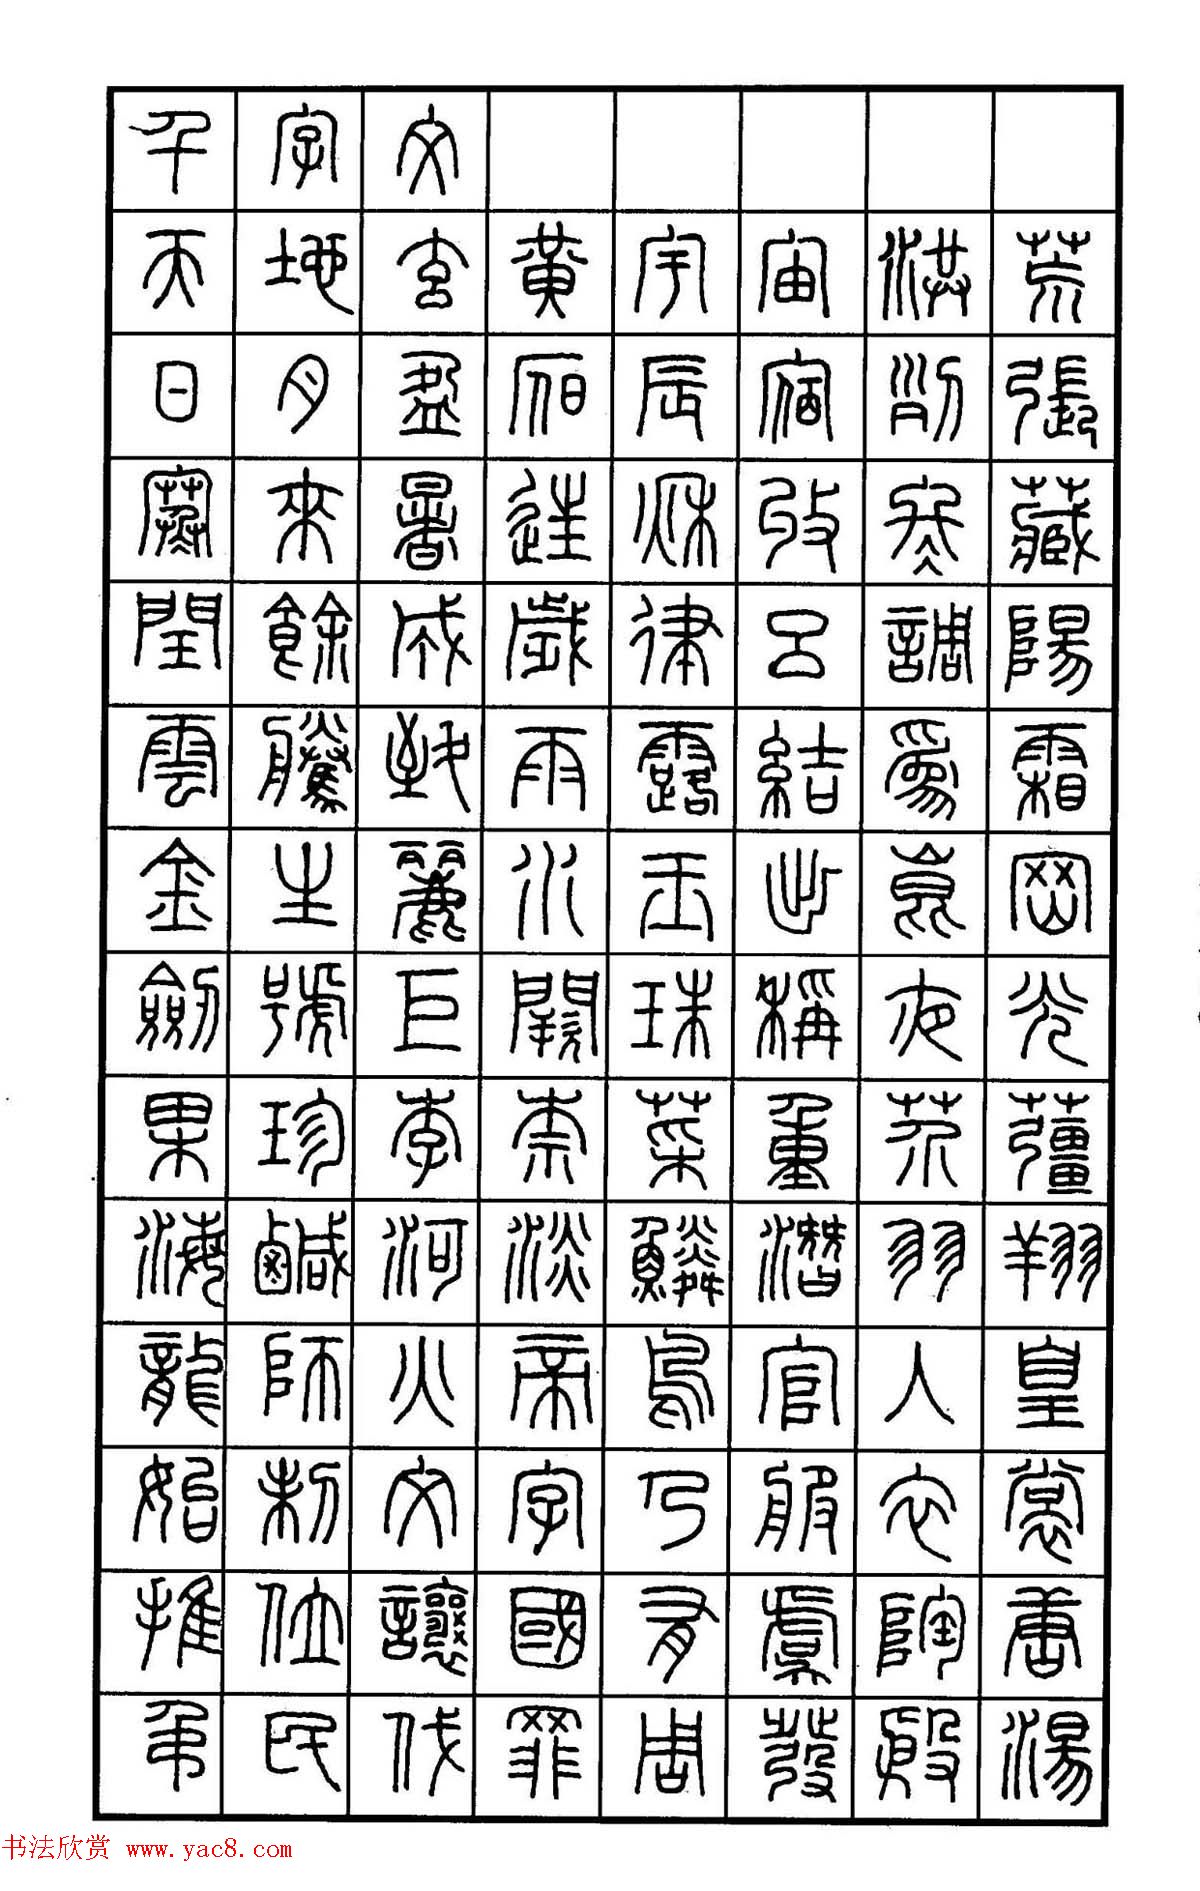 千字文
天地玄黃宇宙洪荒
日月盈昃辰宿列張
寒來暑往秋收冬藏
閏餘成歲律呂調陽
雲騰致雨露結爲霜
金生麗水玉出崑岡
劍號巨闕珠稱夜光
果珍李柰菜重芥薑
海鹹河淡鱗潛羽翔
龍師火帝鳥官人皇
始制文字乃服衣裳
推位讓國有虞陶唐
弔民伐罪周發殷湯
书法欣赏 www.yac8.com